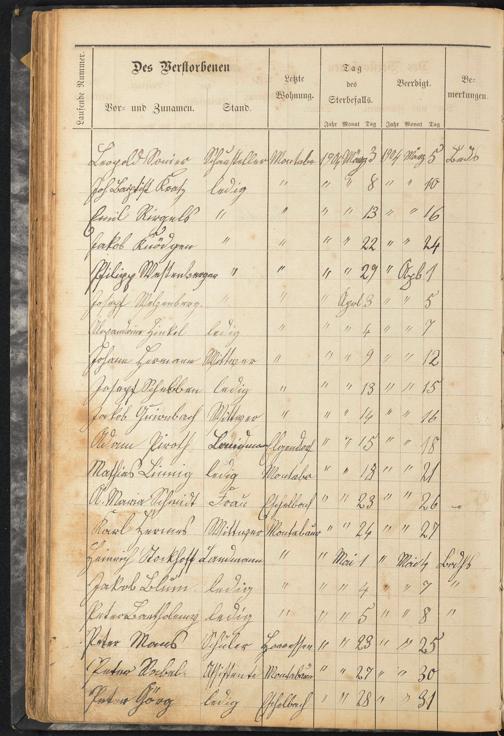 Laufende Nummer.
Des Verstorbenen
Vor- und Zunamen. Stand.
Letzte Wohnung.
Tag des Sterbefalls.
Jahr Monat Tag
Beerdigt.
Jahr Monat Tag
Bemerkungen.
Leopold Schausteller Montabr 1904 März 3 1904 März 5
Joh Baptist ledig " " " 8 " " 10
Emil " " " " 13 " " 16
Jakob Knödgen " " " " 22 " " 24
Philipp Westenberger " " " " 29 " Apl 1
Josef " " " April 3 " " 5
Hinkel ledig " " " 4 " " 7
Johann Hermann Wittwer " " " 9 " " 12
Josef Schebben ledig " " " 13 " " 15
Jakob Wittwer " " " 14 " " 16
Adam Piroth " " 15 " " 18
Mathias Linnig ledig Montabr " " " " 21
A. Maria Schmidt Frau Eschelbach " " 23 " " 26
Karl Hermes Wittwer Montabaur " " 24 " " 27
Heinrich Stockhoff Landmann " " Mai 1 " Mai 4
Jakob Blum ledig " " " 4 " " 7 "
Peter Bartholomy ledig " " " 5 " " 8 "
Peter Mans Schüler " " 23 " " 25
Peter Assistente Montabaur " " 27 " " 30
Peter Görg ledig Eschelbach " " 28 " " 31